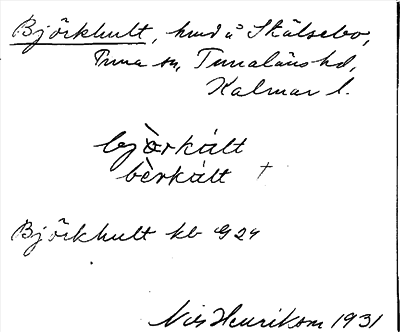 Björkhult, hmd å Skälsebo,
Tuna sn, Tunaläns hd,
Kalmar l.
bjòrkált
bèrkált +
Björkhult kb G24
Nils Henrikson 1931